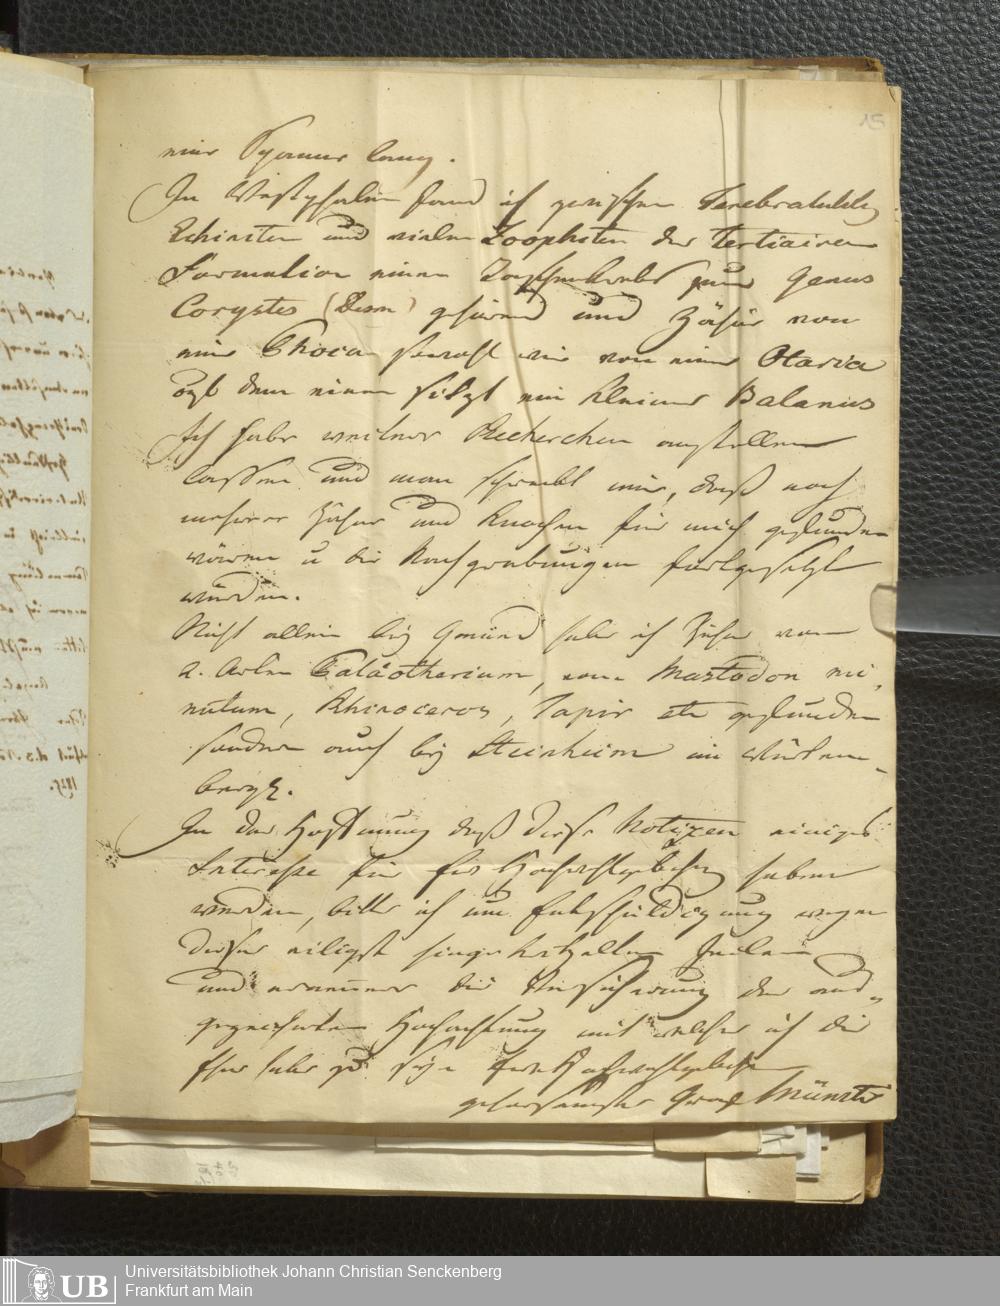 15
eine Spanne lang.
In Westphalen fand ich zwischen Terebratuliten
Echiniten und vielen Zoophiten der Tertiairen
Formation einen Taschenkrebs zum Genus
Corystes (Desm) gehörend und Zähne von
einer Phoca sowohl wie von einer Otaria
auf dem einen sitzt ein kleiner Balanus
Ich habe weitere Recherchen anstellen
lassen und man schreibt mir, daß noch
mehrere Zähne und Knochen für mich gefunden
wären u die Nachgrabungen fortgesetzt
würden.
Nicht allein bey Gmünd habe ich Zähne von
2. Arten Paläotherium, vom Mastodon mi-
nutum, Rhinoceros, Tapir etc gefunden
sondern auch bey Steinheim im Würtem-
berg.
In der Hoffnung daß diese Notizen einiges
Interesse für Ew Hochwohlgeboren haben
werden, bitte ich um Entschuldigung wegen
dieser eiligst Zeilen
und erneuere die Versicherung der aus-
gezeichneten Hochachtung mit welcher ich die
Ehre habe zu seyn Ew Hochwohlgeboren
gehorsamster Graf Münster
1825.
UB
Universitätsbibliothek Johann Christian Senckenberg
Frankfurt am Main